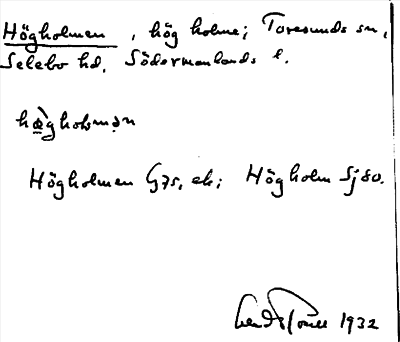 Högholmen, hög holme; Toresunds sn,
Selebo hd, Södermanlands l.
Högholmen G75, ek; Högholm Sj80.
1932